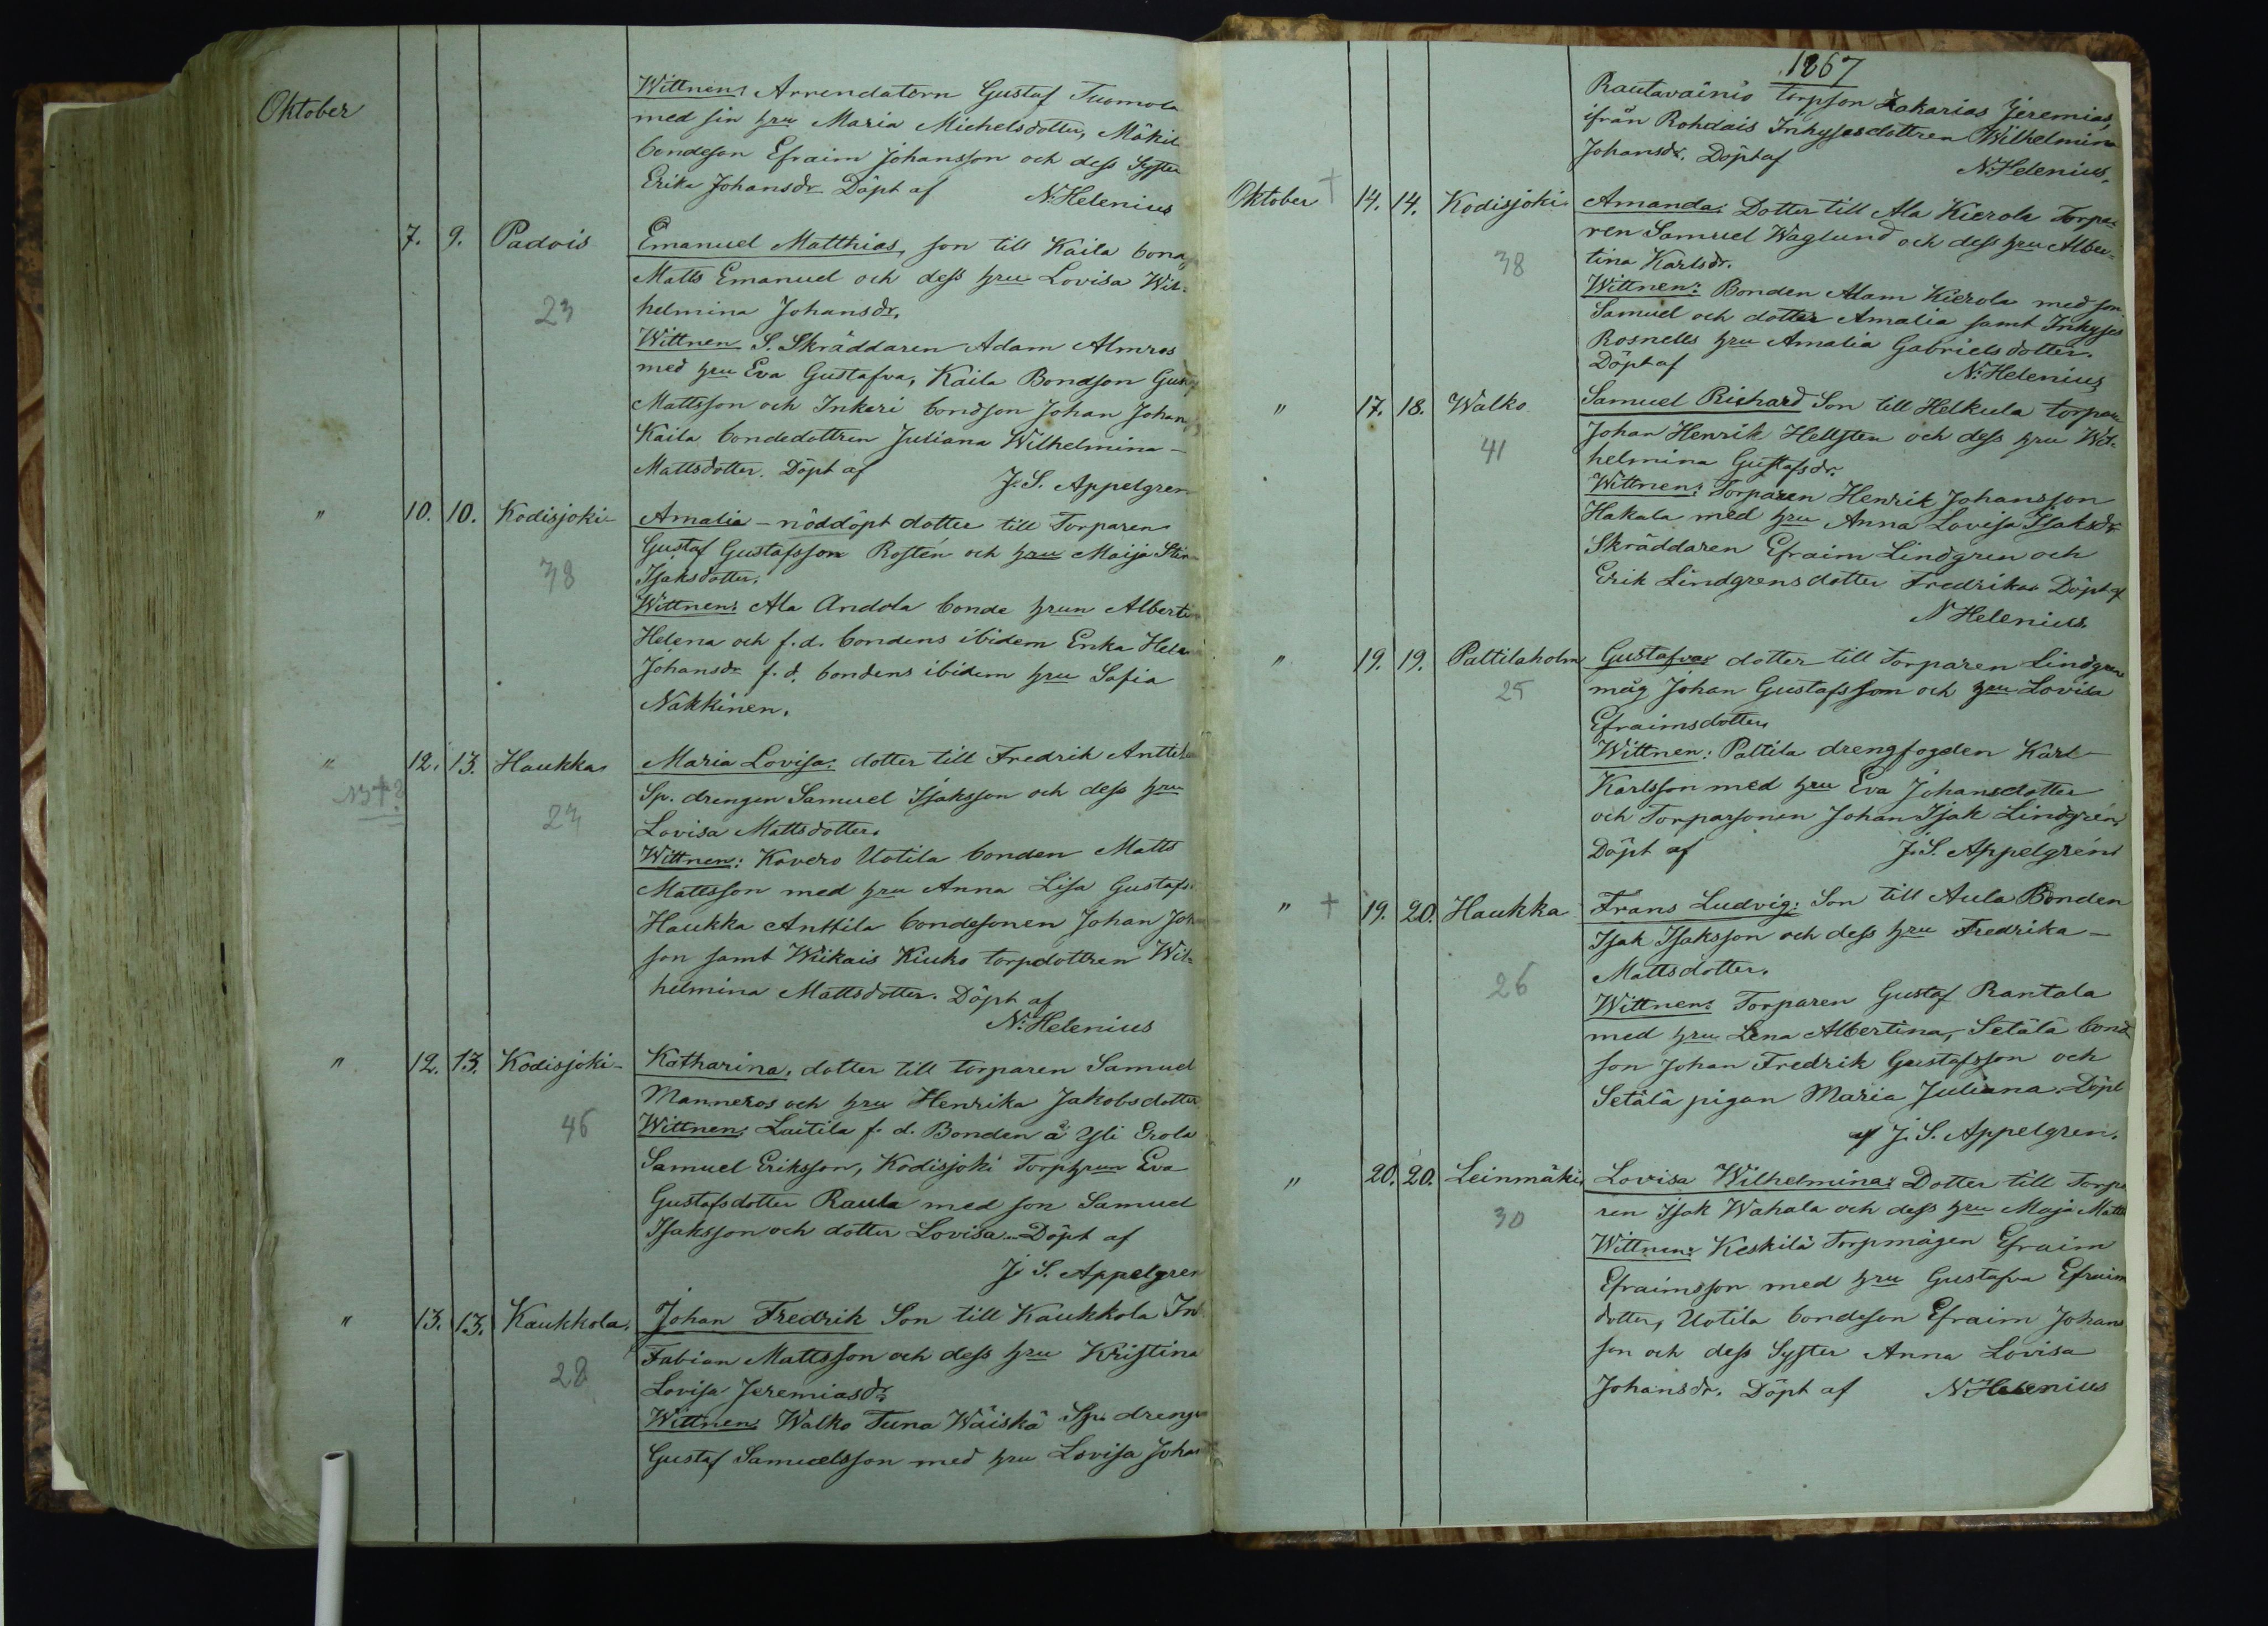 Oktober
Wittnen: Arrendatorn Gustaf Tuomola
med sin hru Maria Michelsdotter, Mäkil
bondeson Efraim Johansson och dess Syster
Erika Johansdr Döpt af N. Helenius
7. 9. Padois Emanuel Matthias, son till Kaila bond
23 Matts Emanuel och dess hru Lovisa Wil-
helmina Johansdr.
Wittnen S. Skräddaren Adam Almros
med hru Eva Gustafva, Kaila Bondson Gust
Mattsson och Inkeri bondson Johan Johan
Kaila bondedottren Juliana Wilhelmina –
Mattsdotter. Döpt af J. S. Appelgren
" 10. 10. Kodisjoki – Amalia – nöddöpt dotter till Torparen
Gustaf Gustafsson Rostén och hru Maija Stin
38 Isaksdotter.
Wittnen: Ala Andola bonde hrun Alberti
Helena och f. d. bondens ibidem Enka Hele
Johansdr f. d. bondens ibidem hru Sofia
Nakkinen.
" 12. 13. Haukka Maria Lovisa: dotter till Fredrik Anttila
24 Sp. drengen Samuel Isaksson och dess hru
Lovisa Mattsdotter.
Wittnen: Kovero Uotila bonden Matts
Mattsson med hru Anna Lisa Gustafs
Haukka Anttila bondesonen Johan Joh
son samt Wiikais Kiuko torpdottren Wil-
helmina Mattsdotter. Döpt af
N. Helenius
" 12. 13. Kodisjoki – Katharina, dotter till torparen Samuel
Manneros och hru Henrika Jakobsdotter
46 Wittnen: Laitila f. d. Bonden å Yli Erola
Samuel Eriksson, Kodisjoki Torphrun Eva
Gustafsdotter Raula med son Samuel
Isaksson och dotter Lovisa. Döpt af
J. S. Appelgren
" 13. 13. Kaukkola. Johan Fredrik Son till Kaukkola In
28 Fabian Mattsson och dess hru Kristina
Lovisa Jeremiasdr
Wittnen: Walko Tuna Wäiskä Sp. dreng
Gustaf Samuelsson med hru Lovisa Johan
1867
Rautavainio torpson Zakarias Jeremias,
ifrån Rohdais Inhysesdottren Wilhelmina
Johansdr. Döpt af N. Helenius.
Oktober † 14. 14. Kodisjoki Amanda: Dotter till Ala Kierola Torpa-
ren Samuel Waglund och dess hru Alber-
38 tina Karlsdr.
Wittnen: Bonden Adam Kierola med son
Samuel och dotter Amalia samt Inhyses
Rosnells hru Amalia Gabrielsdotter.
Döpt af N. Helenius
" 17. 18. Walko Samuel Richard Son till Helkula torpare
41 Johan Henrik Hellsten och dess hru Wil-
helmina Gustafsdr.
Wittnen: Torparen Henrik Johansson
Hakala med hru Anna Lovisa Isaksdr
Skräddaren Efraim Lindgren och
Erik Lindgrens dotter Fredrika. Döpt af
N Helenius.
" 19. 19. Paltilaholm Gustafva: dotter till Torparen Lindgrens
25 måg Johan Gustafsson och hru Lovisa
Efraimsdotter.
Wittnen: Pattila drengfogden Karl
Karlsson med hru Eva Johansdotter
och Torparsonen Johan Isak Lindgrén
Döpt af J. S. Appelgrén
" † 19. 20. Haukka Frans Ludvig: Son till Aula Bonden
Isak Isaksson och dess hru Fredrika –
26 Mattsdotter.
Wittnen: Torparen Gustaf Rantala
med hru Lena Albertina, Setälä bond
son Johan Fredrik Gustafsson och
Setälä pigan Maria Juliana. Döpt
af J. S. Appelgren.
" 20. 20. Leinmäki. Lovisa Wilhelmina: Dotter till Torpa
30 ren Isak Wahala och dess hru Maja Matts
Wittnen: Keskilä Torpmågen Efraim
Efraimsson med hru Gustafva Efraim
dotter, Uotila bondeson Efraim Johans
son och dess Syster Anna Lovisa
Johansdr. Döpt af N. Helenius